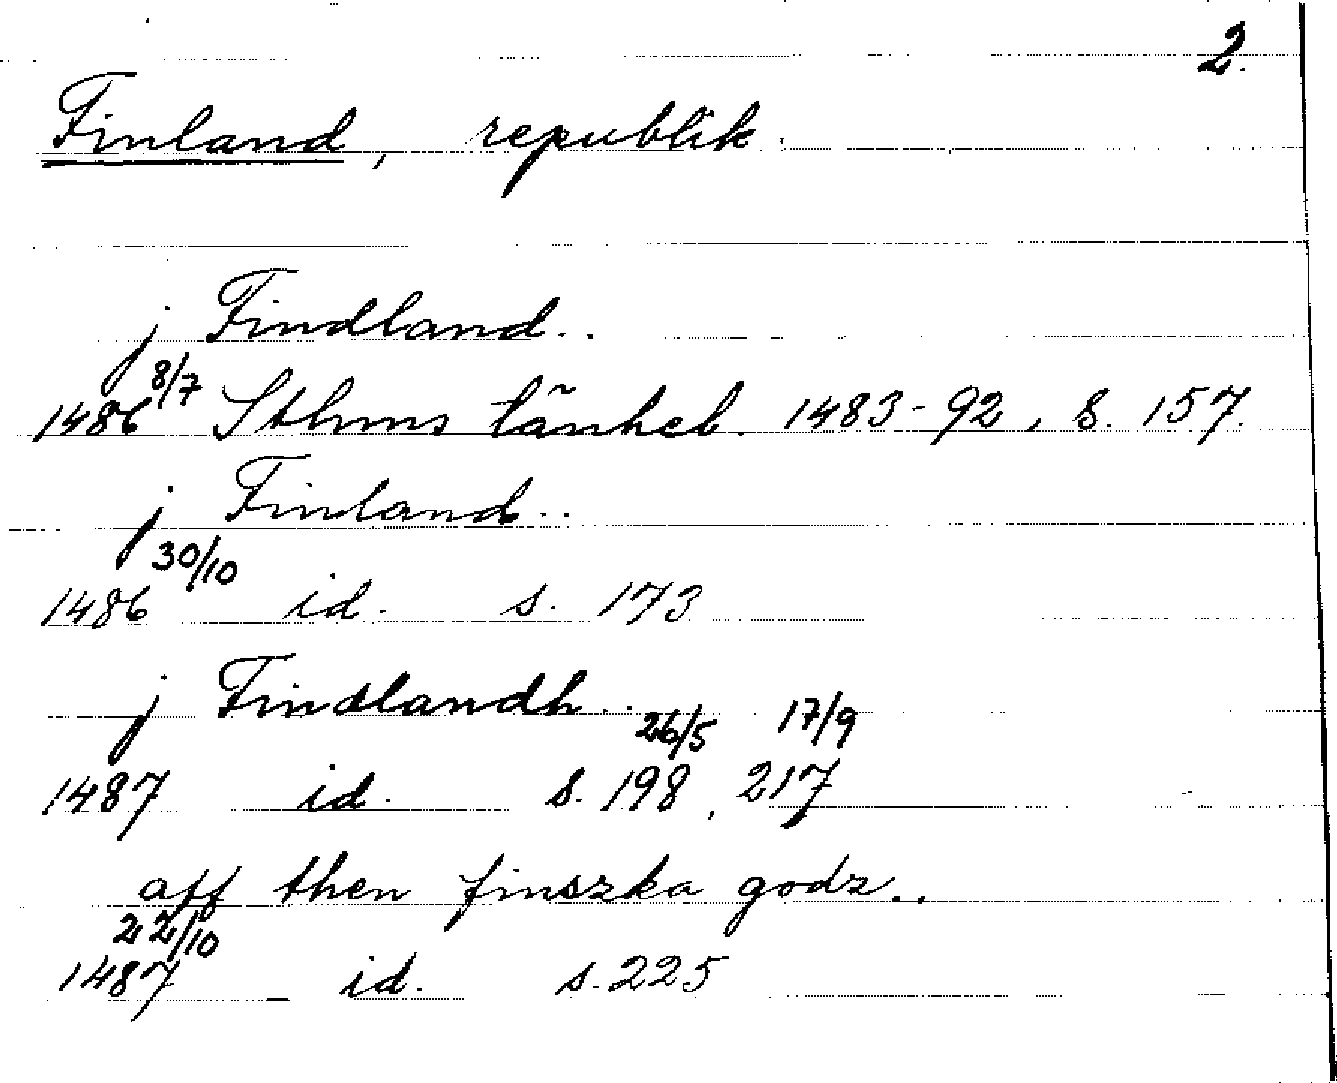 2.
Finland, republik.
j Findland..
1486 8/7 Sthms tänkeb. 1483-92, s. 157.
j Finland..
1486 30/10 id. s. 173
j Findlandh..
1487 id. s. 198 26/5, 217 17/9
aff then finszka godz..
1487 22/10 id. s. 225